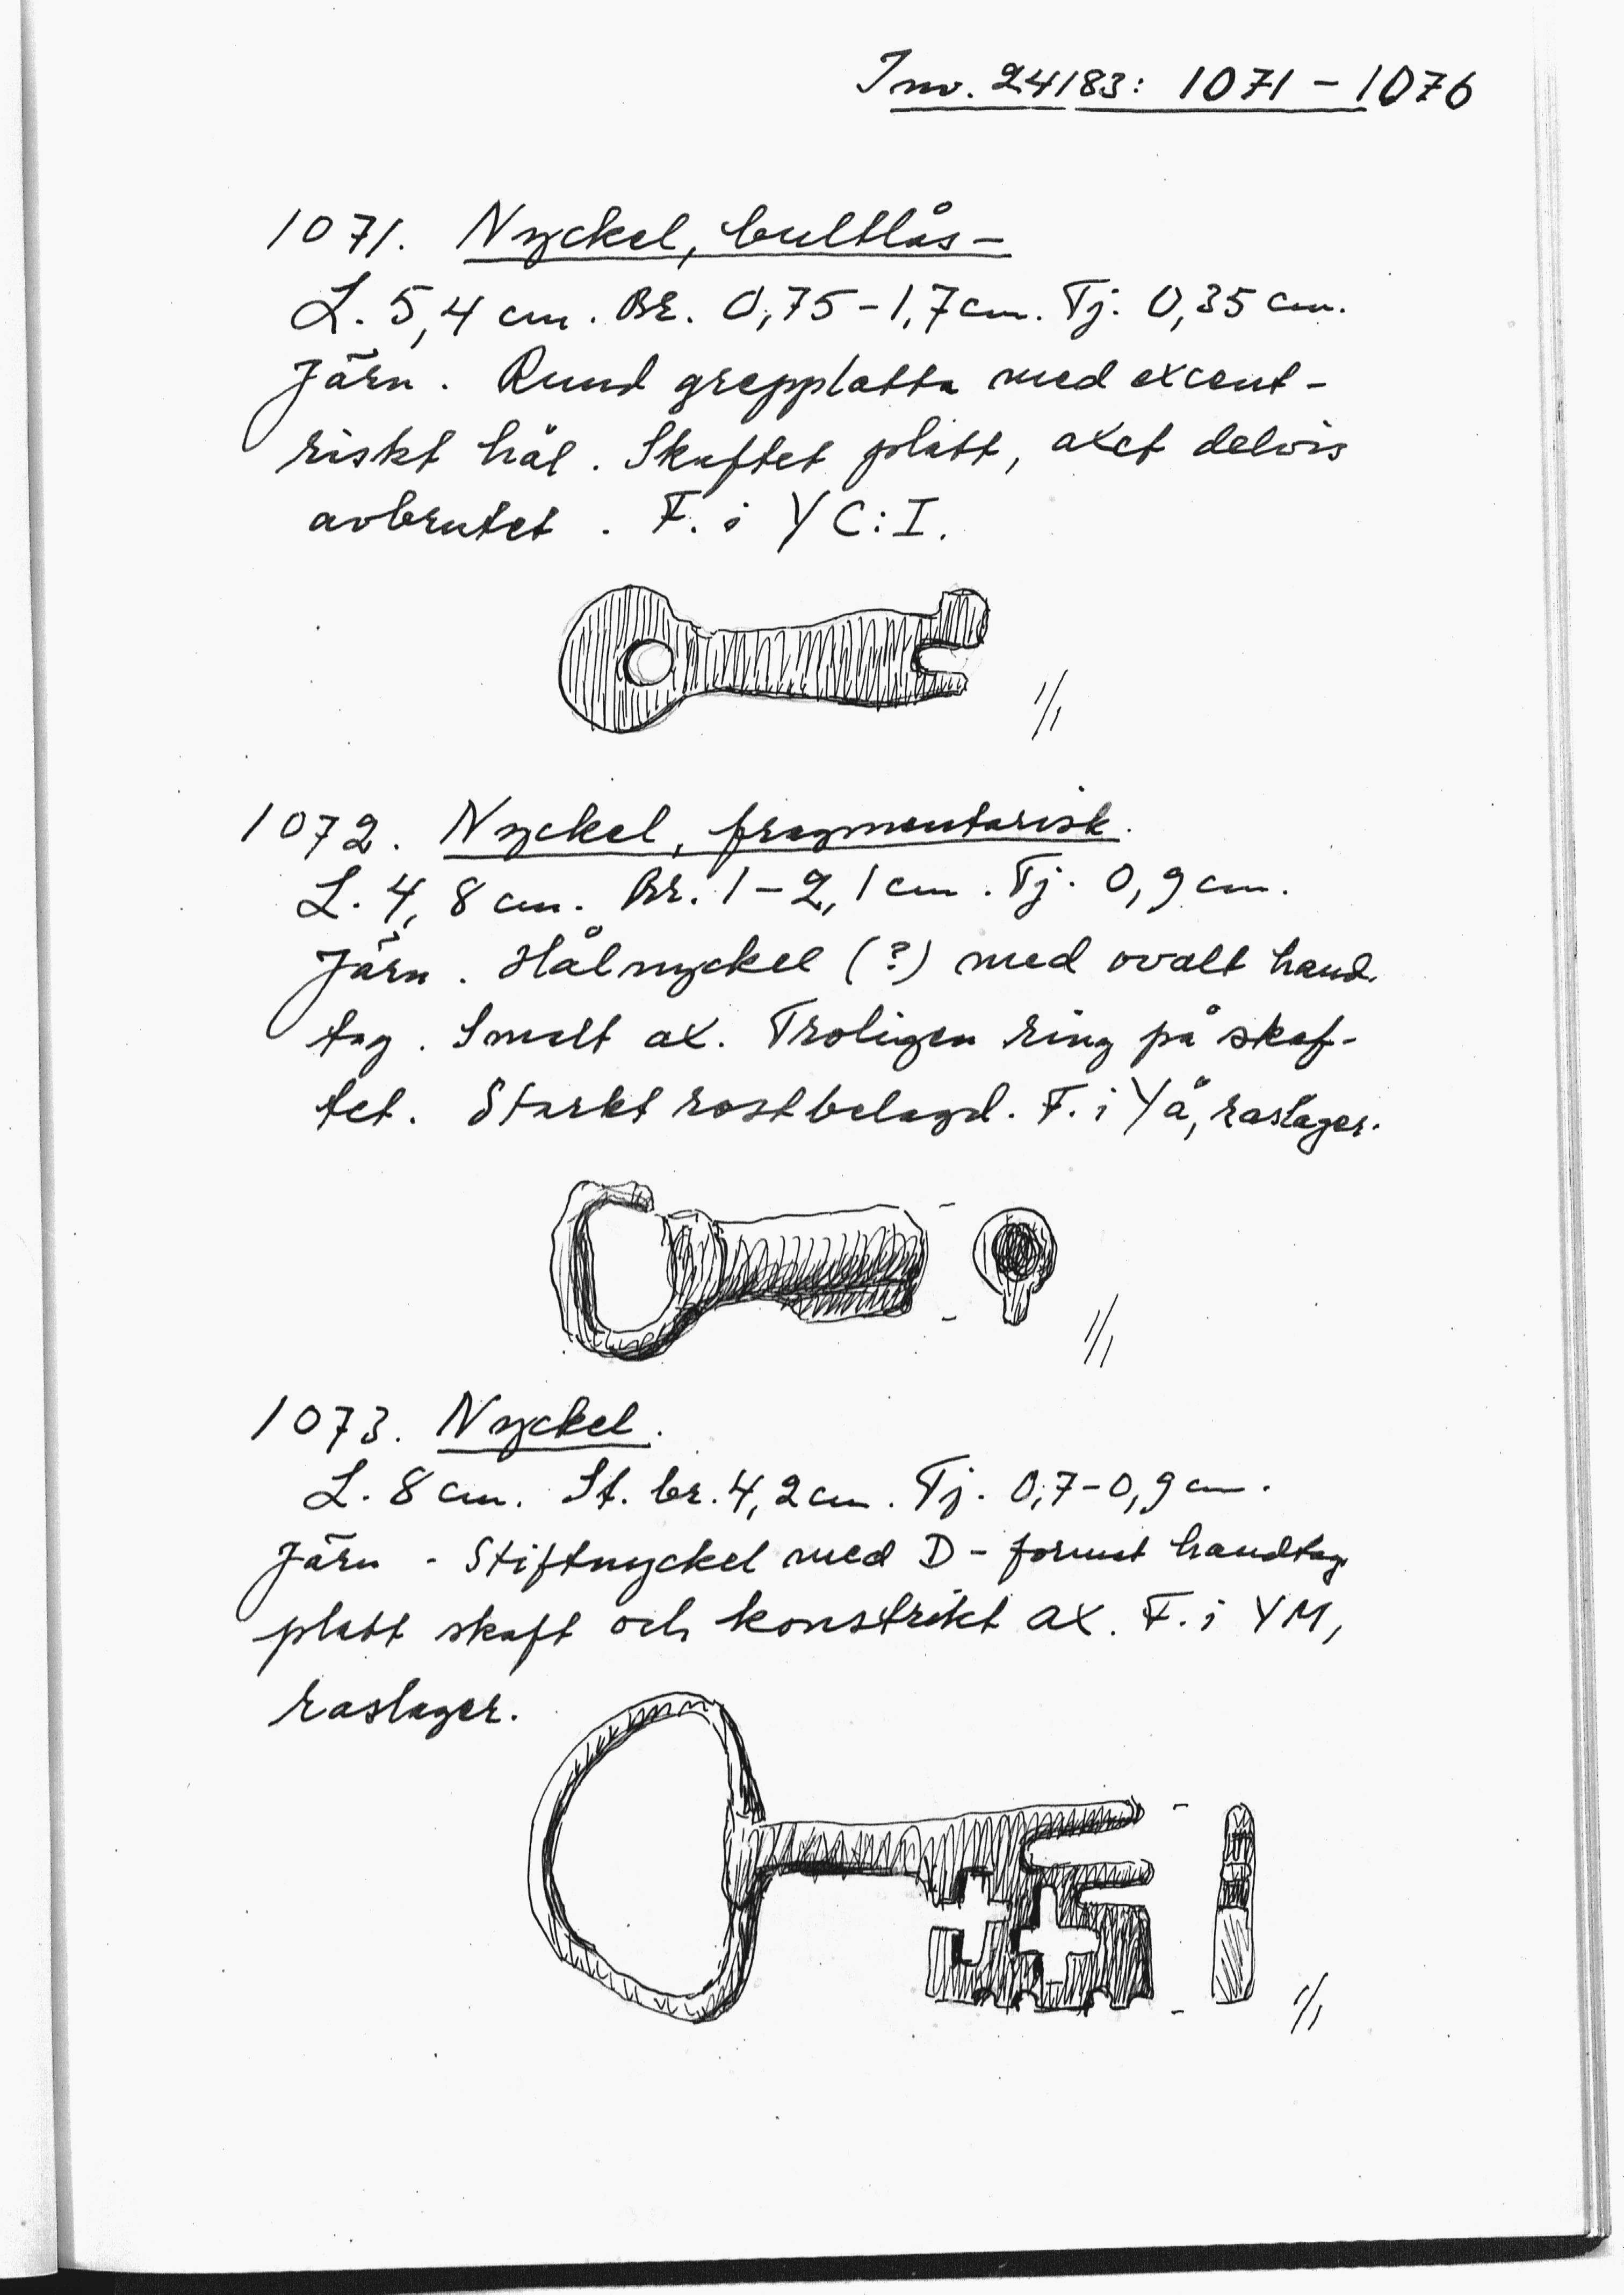 Inv. 24183: 1071 - 1076
1071. Nyckel, bultlås-
L. 5,4 cm. Br. 0,75-1,7 cm. Tj. 0,35 cm.
Järn. Rund grepplatta med excent-
riskt hål. Skaftet platt, axet delvis
avbrutet. F. i YC:I.
1/1
1072. Nyckel, fragmentarisk.
L. 4,8 cm. Br. 1-2,1 cm. Tj. 0,9 cm.
Järn. Hålnyckel (?) med ovalt hand-
tag. Smalt ax. Troligen ring på skaf-
tet. Starkt rostbelagd. F. i YÅ, raslager.
1/1
1073. Nyckel.
L. 8 cm. St. br. 4,2 cm. Tj. 0,7-0,9 cm.
Järn - Stiftnyckel med D-format handtag
platt skaft och konstrikt ax. F. i YM,
raslager.
1/1